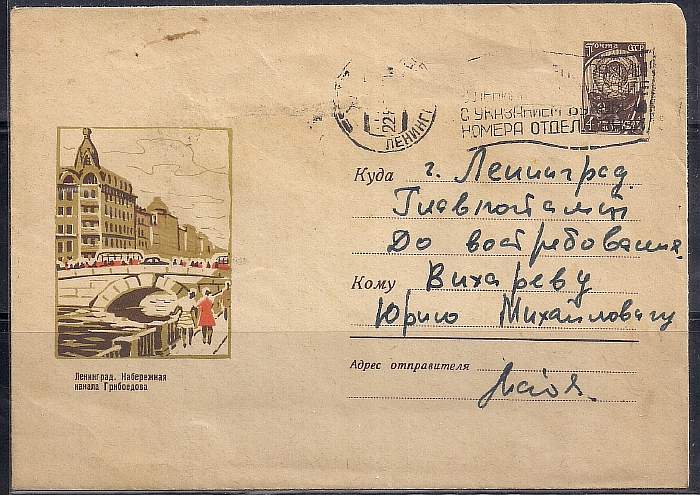 Почта СССР
22
ЛЕНИНГ
С УКАЗАНИЕМ
НОМЕРА ОТДЕЛ
Куда г. Ленинград.
Главпочтамт
До востребования.
Кому Вихареву
Юрию Михайловичу
Адрес отправителя
Ленинград. Набережная
канала Грибоедова